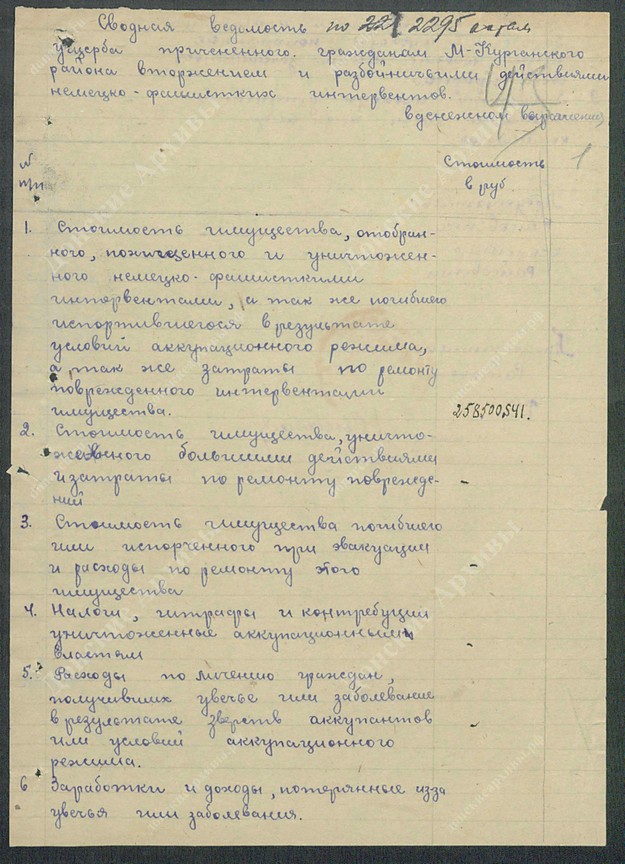 Сводная ведомость по 2295 актам
ущерба причененного гражданам М-Курганского
района вторжением и разбойничьими действиями
немецко-фашистких интервентов.
в денежном выражении
1
N п/п
Стоимость
в руб.
1. Стоимость имущества, отобран-
ного, похищенного и уничтожен-
ного немецко-фашисткими
интервентами, а так же погибшего
испортившегося в результате
условий аккупационного режима,
а так же затраты по ремонту
поврежденного интервентами
имущества. 258500541.
2. Стоимость имущества, уничто-
женного действиями
и затраты по ремонту поврежде- -
ний
3. Стоимость имущества погибшего
или испорченного при эвакуации
и расходы по ремонту этого -
имущества
4. Налоги, штрафы и контребуции
аккупационным
властям -
5. Расходы по лечению граждан,
получивших увечье или заболевание
в результате зверств аккупантов -
или условий аккупационного
режима.
6 Заработки и доходы, потерянные из за
увечья или заболевания.